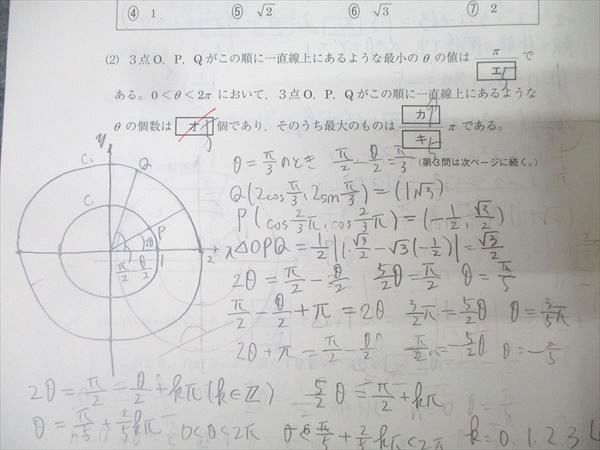 ④ 1 ⑤ √2 ⑥ √3 ⑦ 2
(2) 3点O, P, Qがこの順に一直線上にあるような最小のθの値は π/エ で
ある。0<θ<2πにおいて，3点O, P, Qがこの順に一直線上にあるような
θの個数は オ 個であり，そのうち最大のものは カ/キ πである。
(第3問は次ページに続く。)
θ=π/3のとき π/2-θ/2=π/3
Q(2cosπ/3, 2sinπ/3)=(1√3)
P(cos2/3π, cos2/3π)=(-1/2, √3/2)
△OPQ=1/2|1·√3/2-√3(-1/2)|=√3/2
2θ=π/2-θ/2 5/2θ=π/2 θ=π/5
π/2-θ/2+π=2θ 3/2π=5/2θ θ=3/5π
2θ+π=π/2-θ/2 π/2=-5/2θ θ=-π/5
2θ=π/2-θ/2+kπ(k∈Z) 5/2θ=π/2+kπ
θ=π/5+2/5kπ 0<θ<2π 0<π/5+2/5kπ<2π k=0.1.2.3
y
C₂
Q
C₁
P
2θ
π/2-θ/2
1
2
x